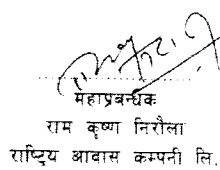 महाप्रबन्धक
राम कृष्ण निरौला
राष्ट्रिय आवास कम्पनी लि.